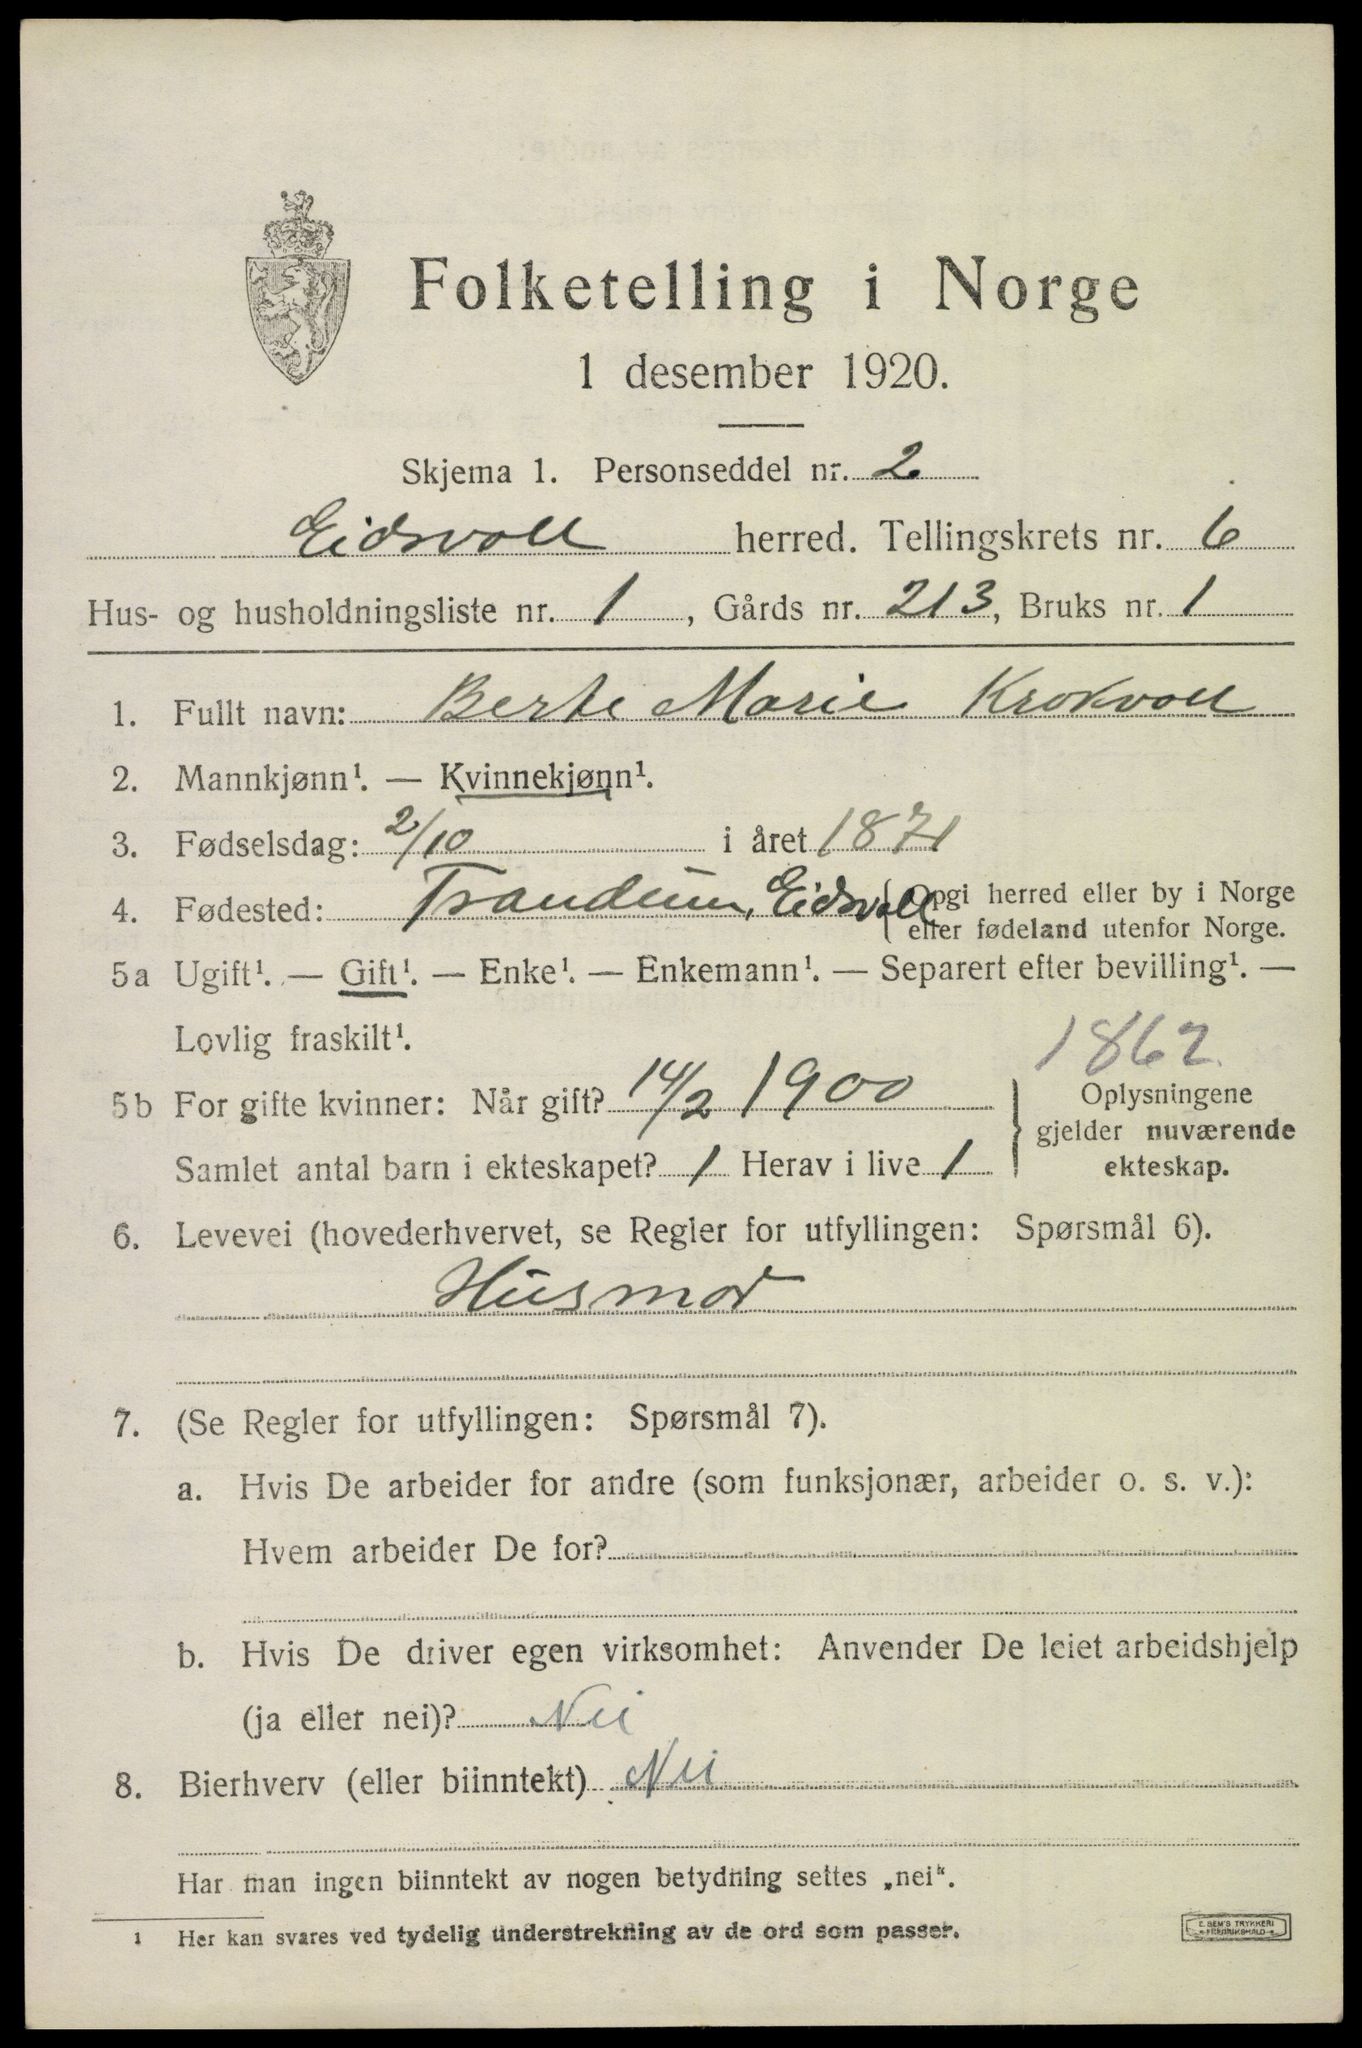 Folketelling i Norge
1 desember 1920.
Skjema 1. Personseddel nr. 2
Eidsvoll herred. Tellingskrets nr. 6
Hus- og husholdningsliste nr. 1, Gårds nr. 213, Bruks nr. 1
1. Fullt navn: Berte Marie Krokvoll
2. Mannkjønn¹. — Kvinnekjønn¹.
3. Fødselsdag: 2/10 i året 1871
4. Fødested: Trandum, Eidsvoll {Opgi herred eller by i Norge
eller fødeland utenfor Norge.
5a Ugift¹. — Gift¹. — Enke¹. — Enkemann¹. — Separert efter bevilling¹. —
Lovlig fraskilt¹.
1862
5b For gifte kvinner: Når gift? 14/2 1900 } Oplysningene
gjelder nuværende
Samlet antal barn i ekteskapet? 1 Herav i live 1 ekteskap.
6. Levevei (hovederhvervet, se Regler for utfyllingen: Spørsmål 6).
Husmor
7. (Se Regler for utfyllingen: Spørsmål 7).
a. Hvis De arbeider for andre (som funksjonær, arbeider o. s. v.):
Hvem arbeider De for?
b. Hvis De driver egen virksomhet: Anvender De leiet arbeidshjelp
(ja eller nei)? Nei
8. Bierhverv (eller biinntekt) Nei
Har man ingen biinntekt av nogen betydning settes „nei“.
¹ Her kan svares ved tydelig understrekning av de ord som passer.
E. SEM'S TRYKKERI
FREDRIKSHALD